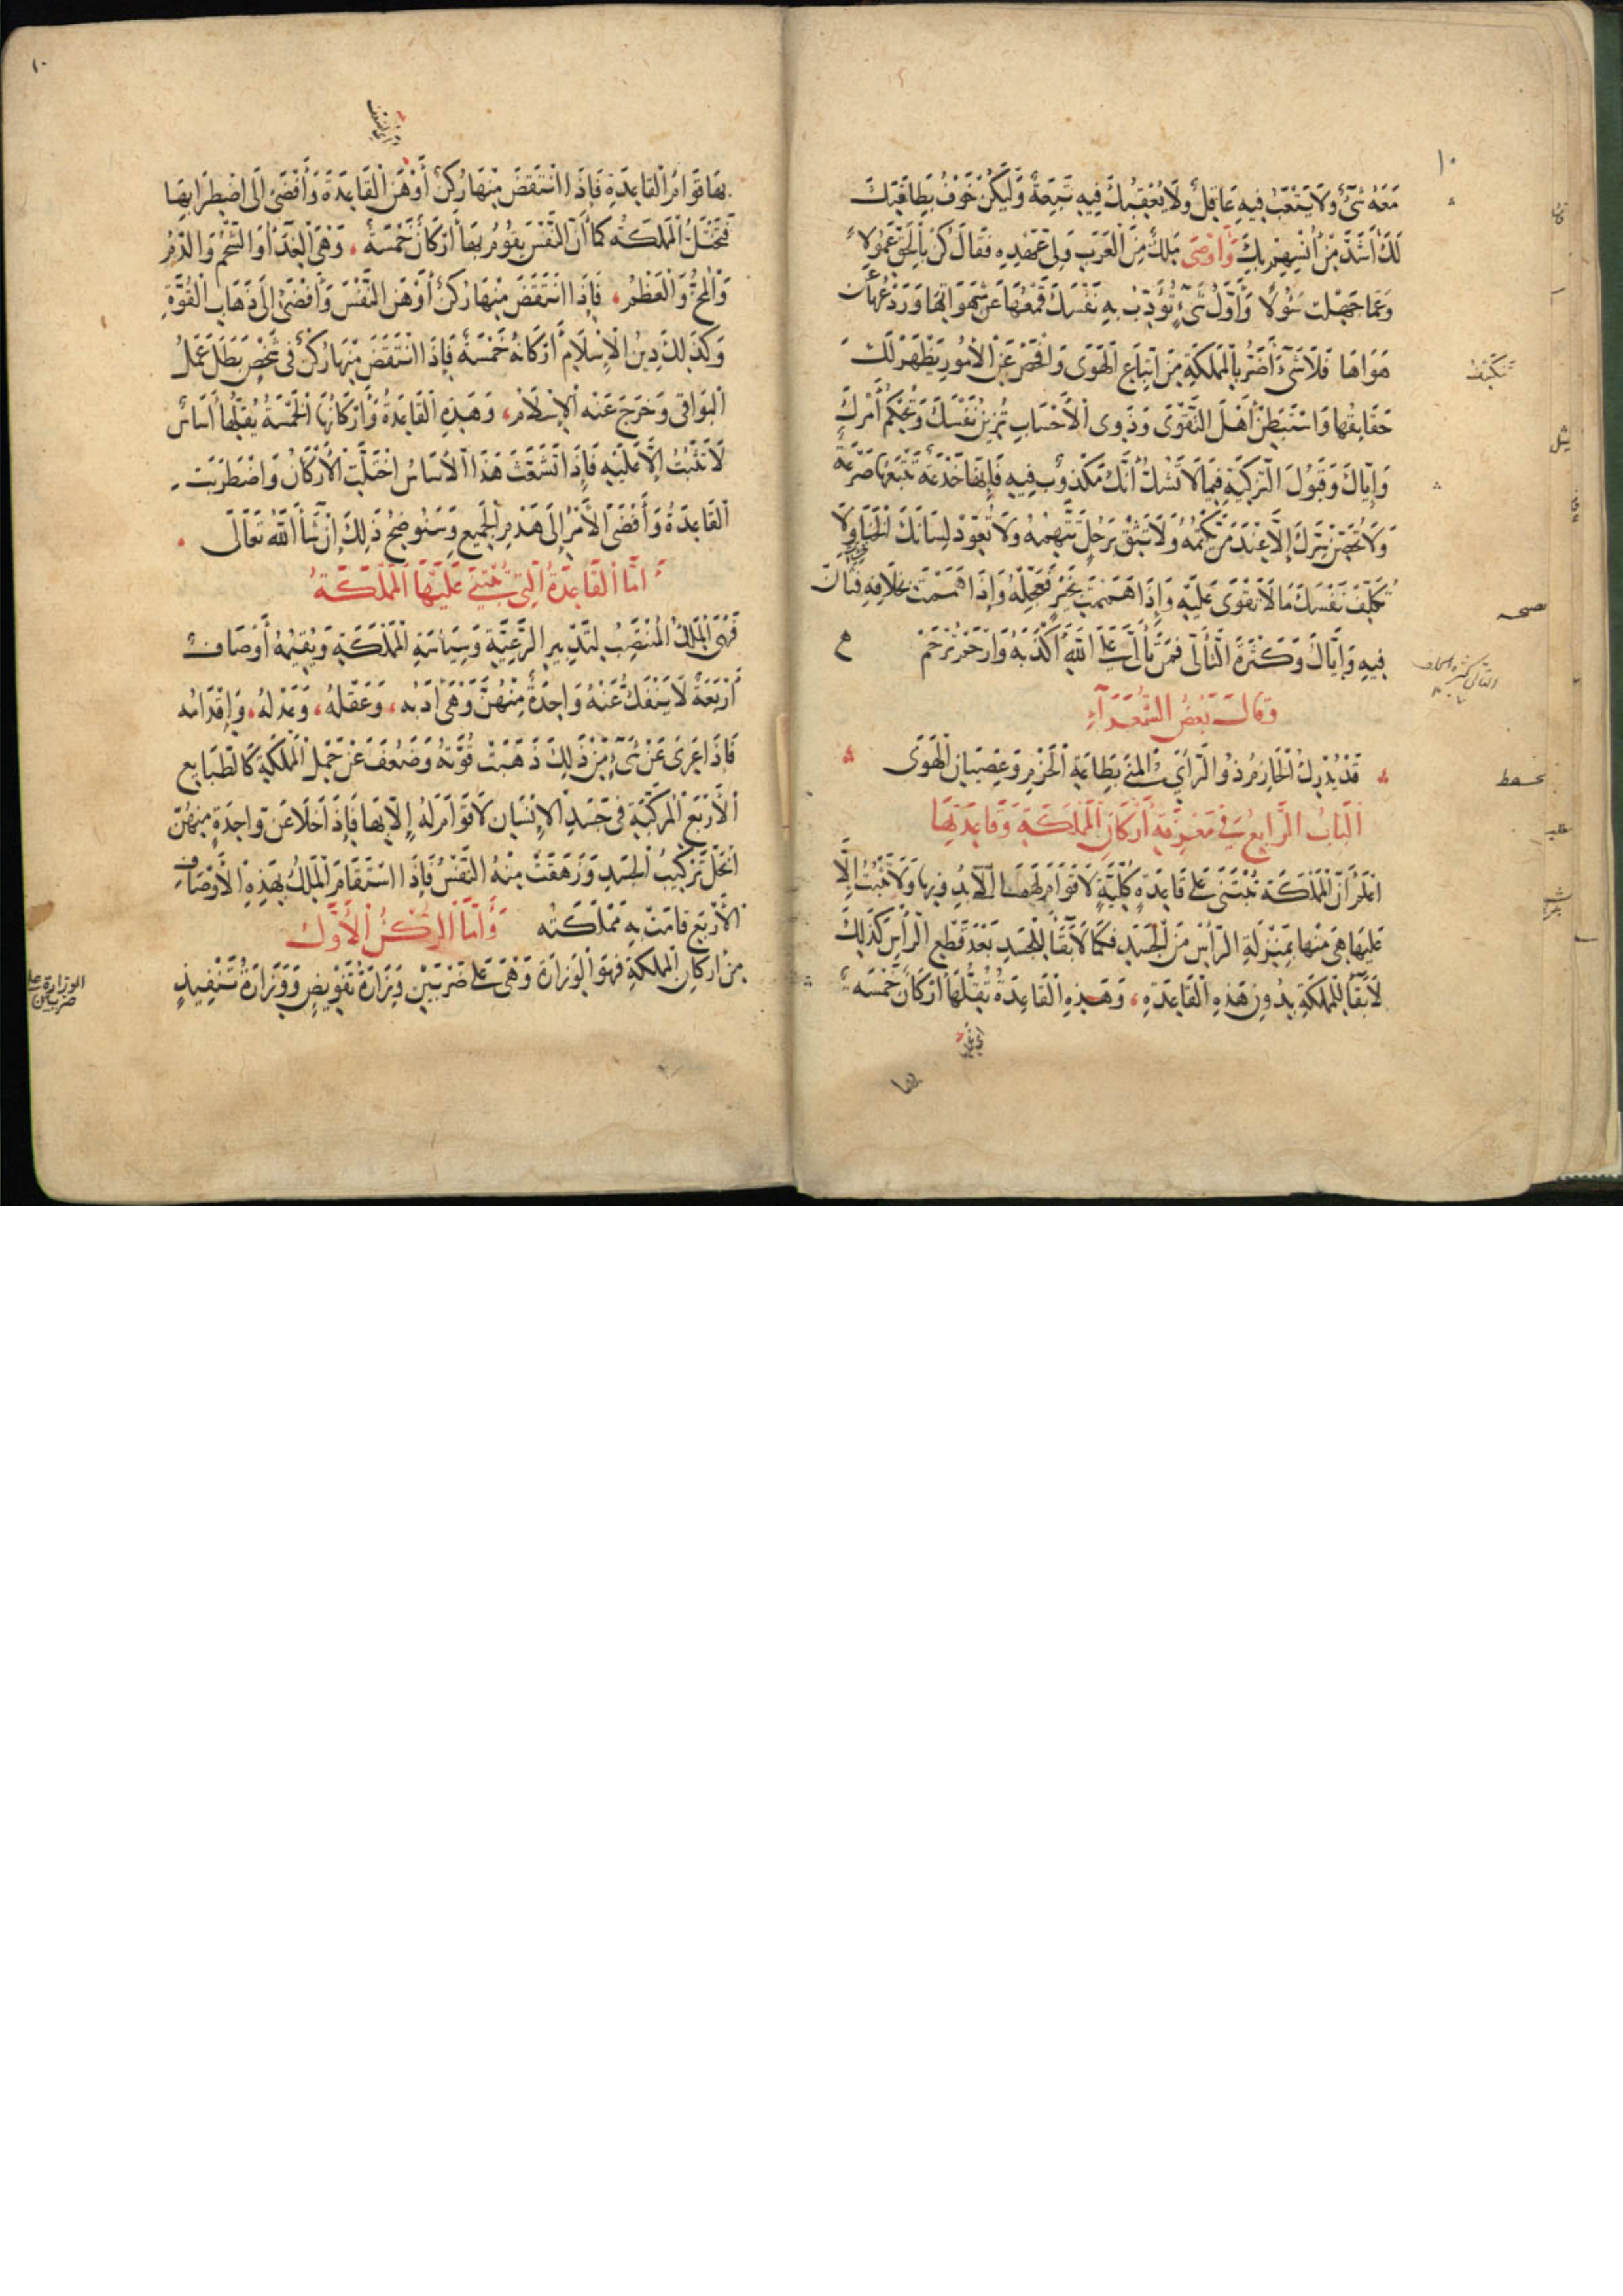 ١٠
معه شئ ولا يتعب فيه عاقل ولا يعقبك فيه تبعة وليكن خوف بطانتك
لك أشد من أنسهم بك وأوصى ملك من العرب ولي عهده فقال كن بالحق عمولا
وعما جهلت سؤلا وأول شئ تؤدب به نفسك قمعها عن شهواتها وردعها عن
هواها فلا شئ أضر بالمملكة من اتباع الهوى وافحص عن الأمور يظهر لك
حقايقها واستبطن أهل التقوى وذوى الأحساب تزين نفسك وتحكم أمرك
وإياك وقبول التزكية فيما لا تشك أنك مكذوب فيه فإنها خدعة تتبعها صرعة
ولا تخبر بسرك إلا عند من يكتمه ولا تثق برجل تتهمه ولا تعود لسانك الخنا ولا
تكلف نفسك ما لا تقوى عليه وإذا هممت بخير فعجله وإذا هممت بخلافه فتأن
فيه وإياك وكثرة التألى فمن تألى على الله أكذبه وارحم ترحم
وقال بعض الشعراء
قد يدرك الحازم ذو الرأي المنى بطاعة الحزم وعصيان الهوى
الباب الرابع في معرفة أركان المملكة وقاعدتها
اعلم أن المملكة تبتنى على قاعدة كلية لا قوام لها إلا بها ولا تثبت إلا
عليها هي منها بمنزلة الرأس من الجسد فكما لا بقا للجسد بعد قطع الرأس كذلك
لا بقا للمملكة بدون هذه القاعدة وهذه القاعدة تقلها أركان خمسة
صحـ
١٠
بها قوام القاعدة فإذا انتقض منها ركن أوهن القاعدة وأفضى إلى اضطرابها
فتختل المملكة كما أن النفس يقوم بها أركان خمسة وهي الغذا والشحم والدم
والمخ والعظم فإذا انتقض منها ركن أوهن النفس وأفضى إلى ذهاب القوة
وكذلك دين الإسلام أركانه خمسة فإذا انتقض منها ركن في شخص بطل عمل
البواقى وخرج عنه الإسلام وهذه القاعدة وأركانها الخمسة يقلها أساس
لا تثبت إلا عليه فإذا تشعث هذا الأساس اختلت الأركان واضطربت
القاعدة وأفضى الأمر إلى هدم الجميع وسنوضح ذلك إن شا الله تعالى
أما القاعدة التي تبتنى عليها المملكة
فهي الملك المنتصب لتدبير الرعية وسياسة المملكة ويقيمه أوصاف
أربعة لا ينفك عنه واحدة منهن وهي أدبه وعقله وعدله وإقدامه
فإذا عرى عن شئ من ذلك ذهبت قوته وضعف عن حمل المملكة كالطبايع
الأربع المركبة في جسد الإنسان لا قوام له إلا بها فإذا خلا عن واحدة منهن
انحل تركيب الجسد وزهقت منه النفس فإذا استقام الملك بهذه الأوصاف
الأربع قامت به مملكته وأما الركن الأول
من أركان المملكة فهو الوزارة وهي على ضربين وزارة تفويض ووزارة تنفيذ
الوزارة على
ضربين